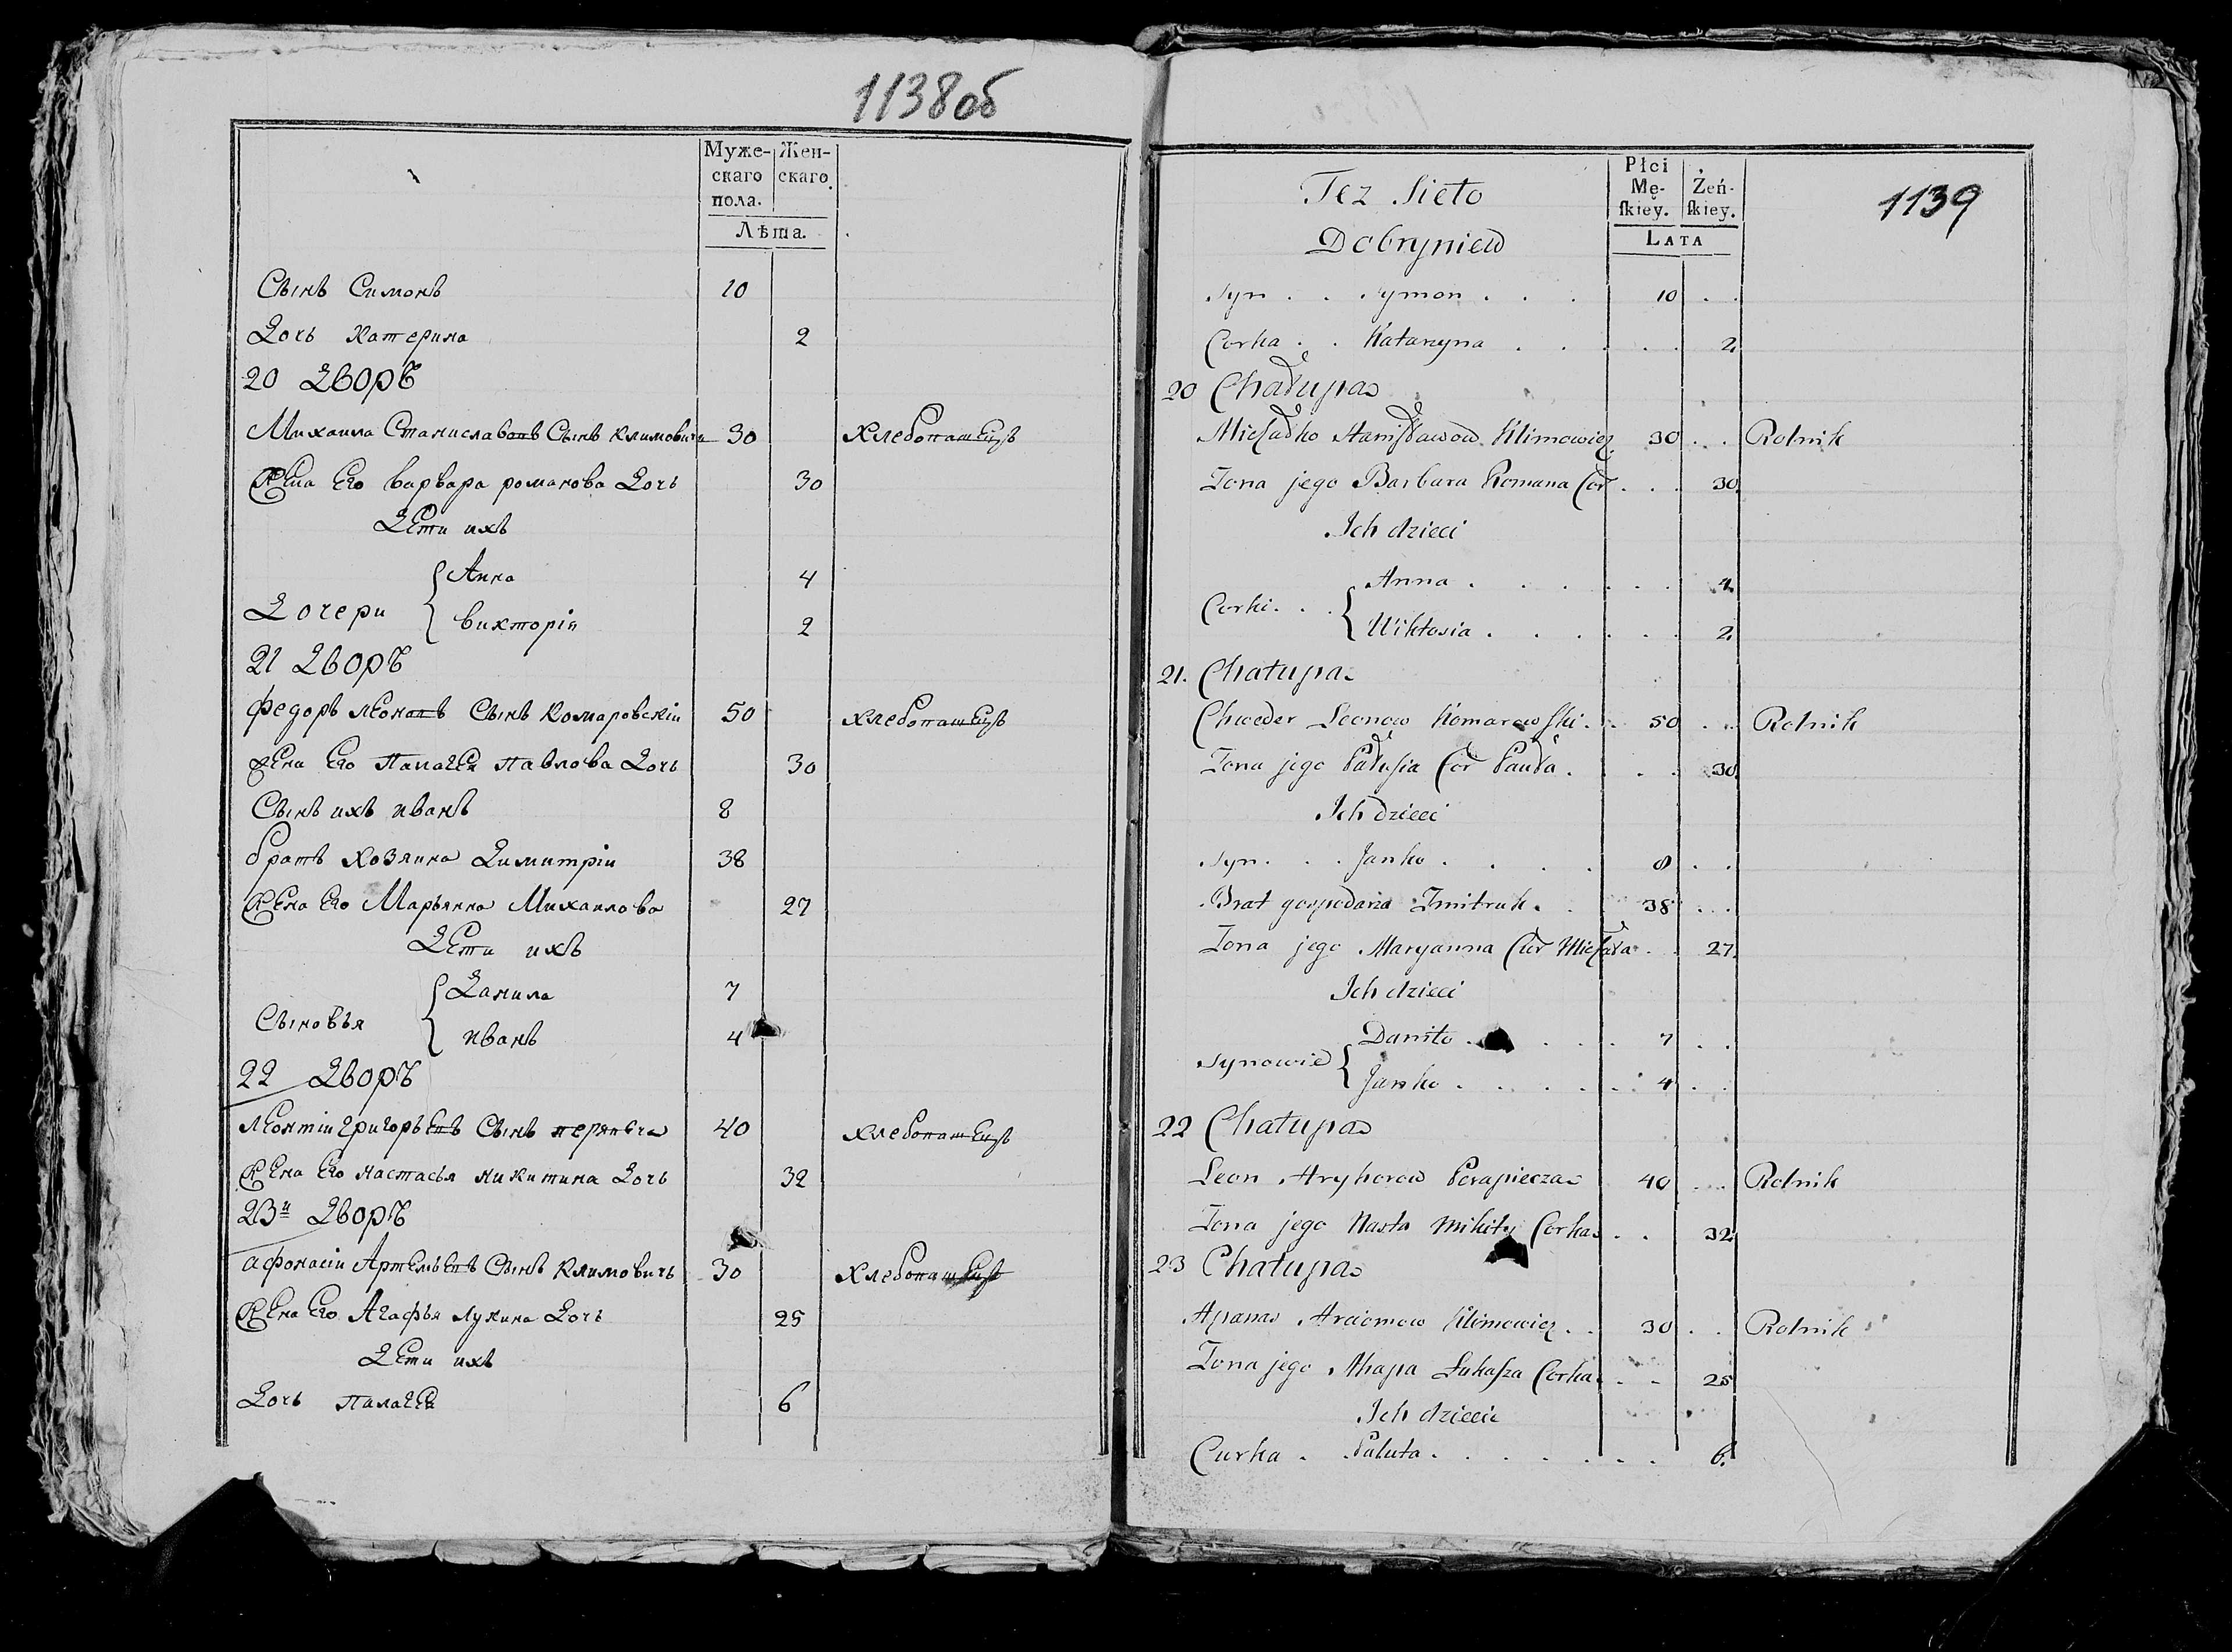 1138об
Муже-
скаго
пола.
Жен-
скаго
Лѣта.
Сынъ Симонъ 10
Дочь катерина 2
20 Дворъ
Михаила Станиславовъ Сынъ климовичь 30 хлебопашецъ
жена Его варвара романова Дочь 30
Дети ихъ
Дочери { Анна 4
викторія 2
21 Дворъ
федоръ леоновъ Сынъ комаровскіи 50 хлебопашецъ
жена Его Палагея павлова Дочь 30
Сынъ ихъ иванъ 8
братъ хозяина Димитріи 38
жена Его Марьянна Михаилова 27
Дети ихъ
Сыновья { Данила 7
иванъ 4
22 Дворъ
леонтіи григорьевъ Сынъ 40 хлебопашецъ
жена Его настасья никитина Дочь 32
23й Дворъ
афонасіи Артемьевъ Сынъ климовичь 30 хлебопашецъ
жена Его Агафья лукина Дочь 25
Дети ихъ
Дочь палагея 6
1139
Płci
Mę-
ſkiey.
Żeń-
ſkiey.
LATA
Tez Sieło
Dobryniew
Syn . . Symon . . . 10 . .
Corka . . Katarzyna . . . . . 2
20 Chałupa
Michałko Stanisławow Klimowicz 30 . . Rolnik
Zona jego Barbara Romana Cor . . . 30
Ich dzieci
Corki . . . { Anna . . . . . . 4
Wiktosia . . . . . . 2
21. Chałupa
Chweder Leonow Komarowſki . . 50 . . Rolnik
Zona jego Pałuſia Cor Pauła . . . . 30
Ich dzieci
Syn . . . Janko . . . . 8 . .
Brat gospodarza Zmitruk . . 38 . . .
Zona jego Maryanna Cur Michała . . 27
Ich dzieci
Synowie { Daniło . . . . 7 . .
Janko . . . . . . 4 . .
22 Chałupa
Leon Hryhorow Perapiecza 40 . . . Rolnik
Zona jego Nasta Mikity Corka . . 32
23 Chałupa
Apanas Arciomow Klimowicz . . 30 . . Rolnik
Zona jego Ahapa Łukaſza Corka . . - 25
Ich dziecie
Curka . . Paluta . . . . . . . 6